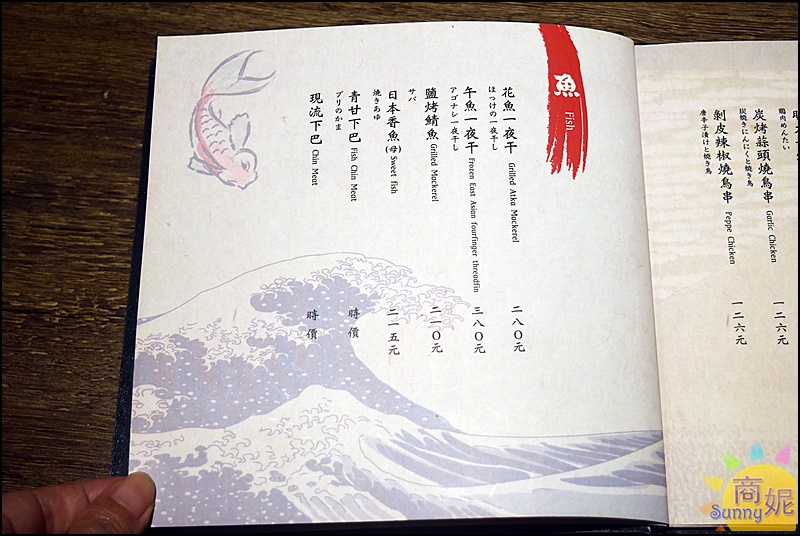 魚 Fish
花魚一夜干 Grilled Atka Mackerel 二八〇元
ほっけの一夜干し
午魚一夜干 Frozen East Asian fourfinger threadfin 三八〇元
アゴナシ一夜干し
鹽烤鯖魚 Grilled Mackerel 二一〇元
サバ
日本香魚(母) Sweet fish 二一五元
焼きあゆ
青甘下巴 Fish Chin Meat 時價
ブリのかま
現流下巴 Chin Meat 時價
鶏肉めんたい
炭烤蒜頭燒鳥串 Garlic Chicken 一二六元
炭焼きにんにくと焼き鳥
剝皮辣椒燒鳥串 Peppe Chicken 一二六元
唐辛子漬けと焼き鳥
商妮
Sunny